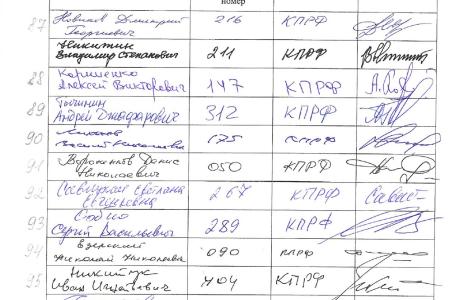 номер
87 Новиков Дмитрий Георгиевич 216 КПРФ
Никитин Владимир Степанович 211 КПРФ
88 Корниенко Алексей Викторович 147 КПРФ
89 Андрей Джафарович 312 КПРФ
90 175 КПРФ
91 Вороненков Денис Николаевич 050 КПРФ
92 Савицкая Светлана Евгеньевна 267 КПРФ
93 Сергей Васильевич 289 КПРФ
94 Езерский Николай Николаевич 090 КПРФ
95 Никитчук Иван Игнатьевич 404 КПРФ